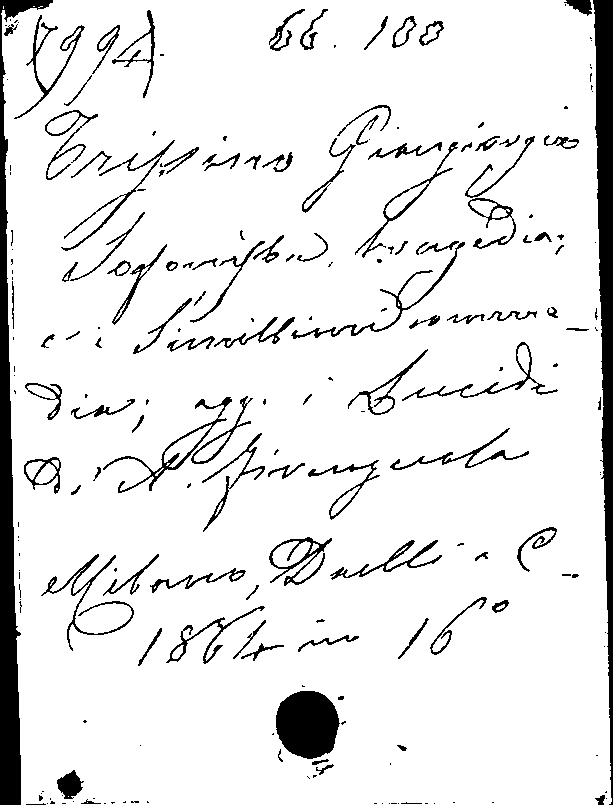 7994) 66. 188
Trissino Giangiorgio
Sofonisba, tragedia;
e i Simillimi comme-
dia; agg. i Lucidi
di A. Firenzuola
Milano, Daelli e C.
1864 in 16°